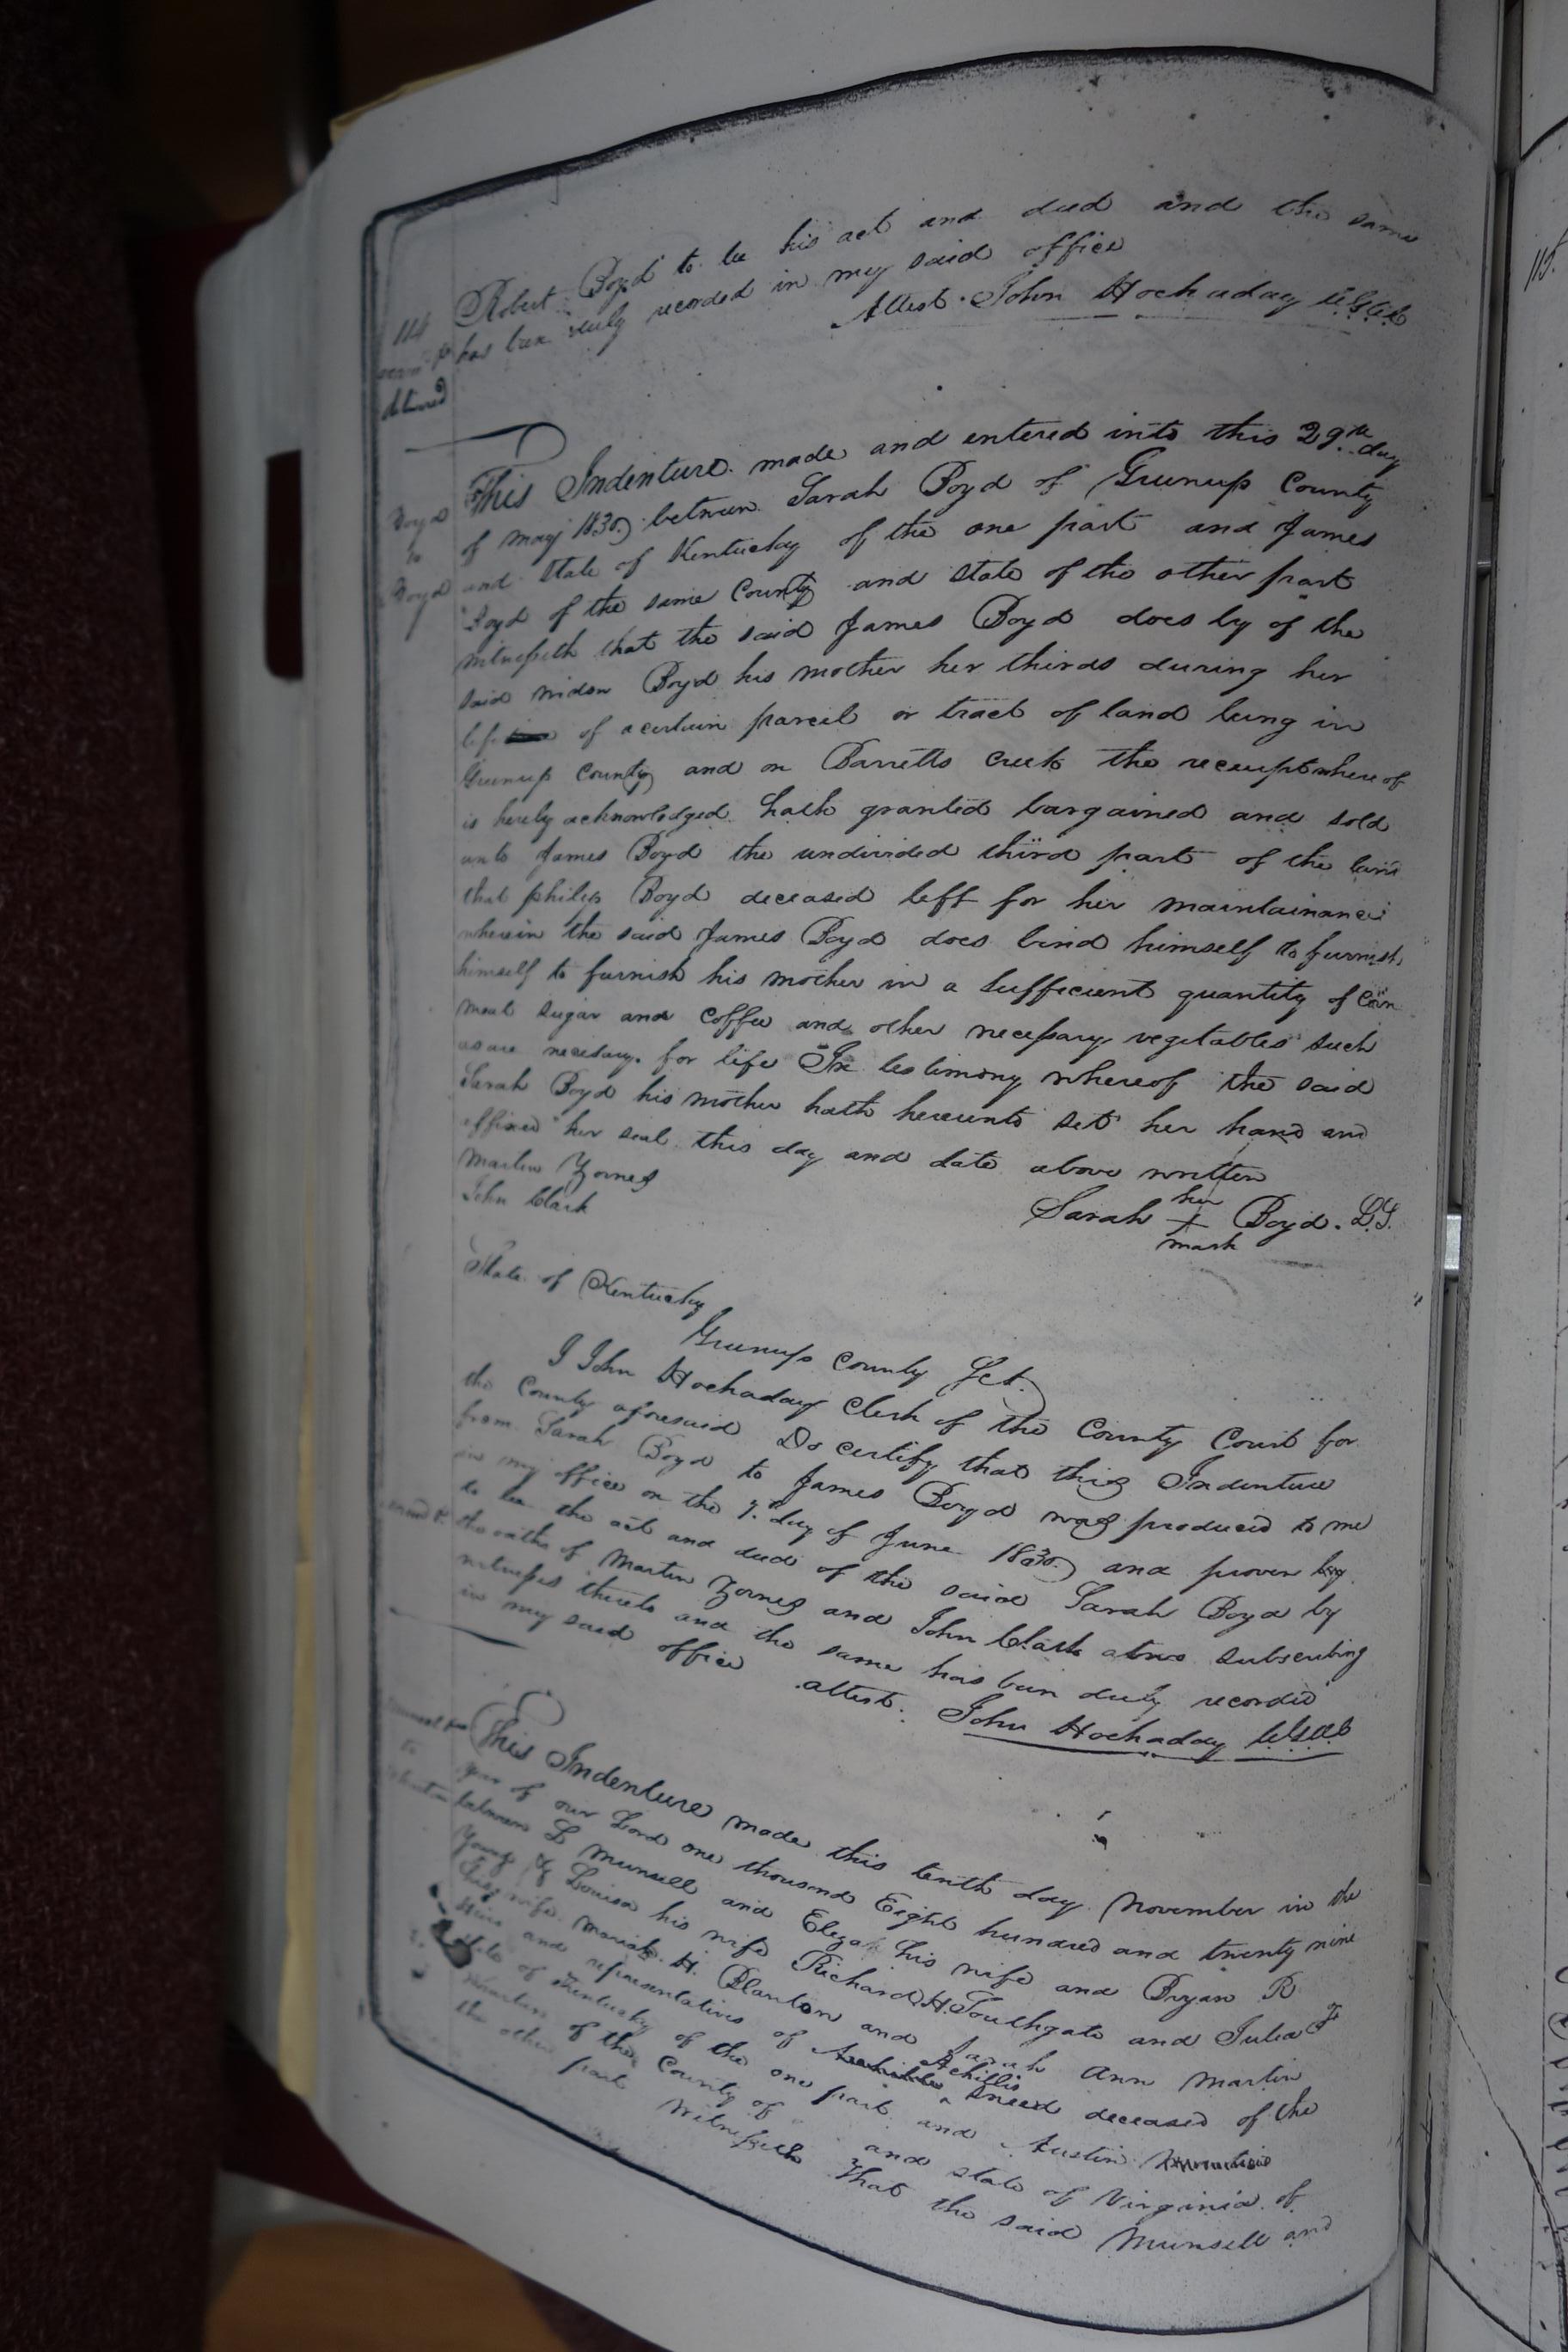 114
Robert Boyd to be his act and deed and the same
has been duly recorded in my said office
Attest. John Hockaday C.G.C.C.
Boyd
to
Boyd
This Indenture made and entered into this 29th day
of may 1830 between Sarah Boyd of Greenup County
and State of Kentucky of the one part and James
Boyd of the same County and state of the other part
witnesseth that the said James Boyd does by of the
said widow Boyd his mother her thirds during her
life of a certain parcel or tract of land lying in
Greenup County and on Barretts creek the receipt whereof
is hereby acknowledged hath granted bargained and sold
unto James Boyd the undivided third part of the land
that philip Boyd deceased left for her maintainance
wherein the said James Boyd does bind himself to furnish
himself to furnish his mother in a sufficient quantity of corn
meat sugar and coffee and other necessary vegetables such
as are necesary for life In testimony whereof the said
Sarah Boyd his mother hath hereunto set her hand and
affixed her seal this day and date above written
Martin Zornes
John Clark
Sarah her + mark Boyd. L.S.
State of Kentucky
Greenup County Sct.
I John Hockaday Clerk of the County Court for
the County aforesaid Do certify that this Indenture
from Sarah Boyd to James Boyd was produced to me
in my office on the 7th day of June 1830 and proven by
to be the act and deed of the said Sarah Boyd by
the oaths of Martin Zornes and John Clark subscribing
witnesses thereto and the same has been duly recorded
in my said office
attest. John Hockaday C.G.C.C.
to
This Indenture made this tenth day November in the
year of our Lord one thousand Eight hundred and twenty nine
between L Munsell and Eliza his wife and Bryan R
Young & Louisa his wife Richard H. Southgate and Julia F
his wife Mariah H. Blanton and Sarah Ann Martin
Heirs and representatives of Achillis Sneed deceased of the
State of Kentucky of the one part and Austin
of the County of and state of Virginia of
the other part Witnesseth That the said Munsell and